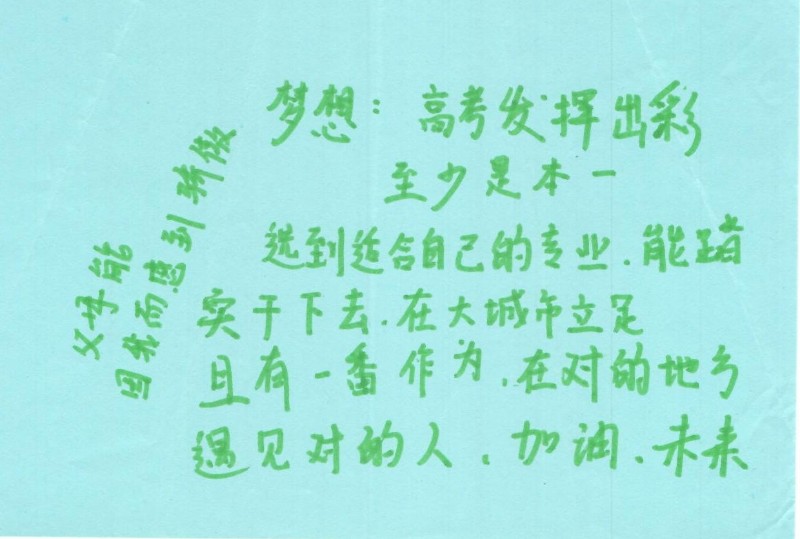 梦想：高考发挥出彩
至少是本一
选到适合自己的专业.能踏
实干下去.在大城市立足
且有一番作为.在对的地方
遇见对的人.加油.未来
父母能
因我而感到骄傲